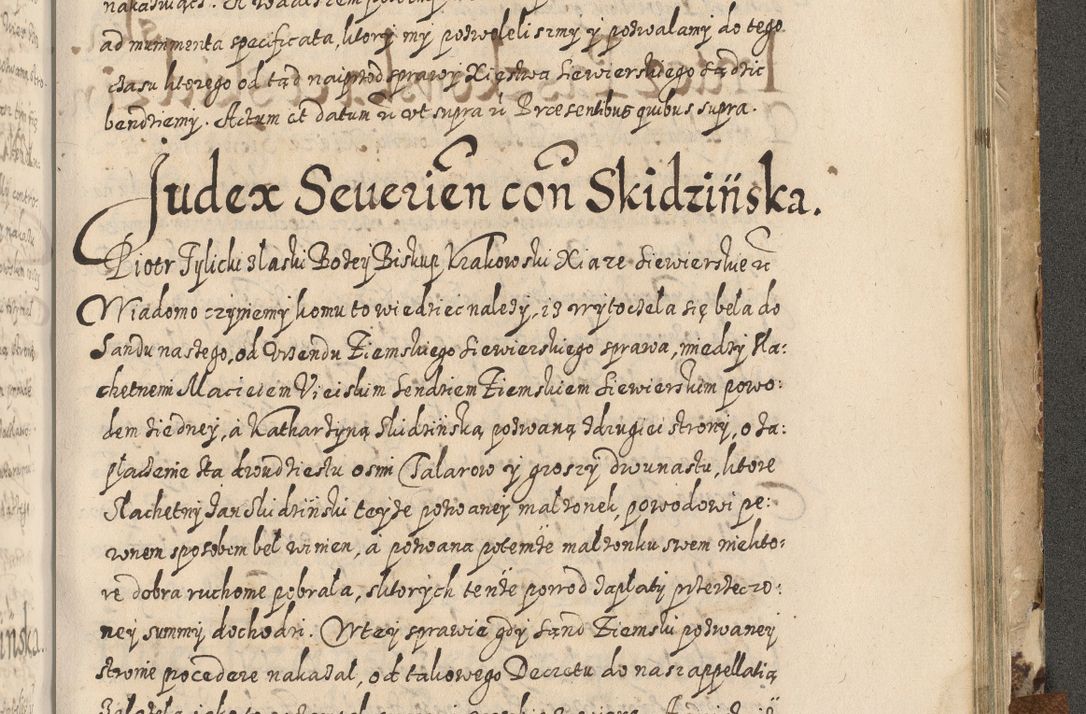 ad munimenta specificata, ktory my pozwoleli smy y pozwalamy do tego
czasu ktorego od tąd naiprzod sprawy Xięstwa Siewierskiego sądzic
bendziemy. Actum et datum ut supra Praesentibus quibus supra.
Judex Seuerien con Skidzińska.
Piotr Tylicki z laski Bożey Biskup Krakowski Xiąże Siewierskie etc
Wiadomo czyniemy komu to wiedziec należy, iż wytoczela się bela do
Sandu naszego, od Urzendu Ziemskiego Siewierskiego sprawa, miedzy Sla:
chetnem Maciejem Vieiskim Sendziem Ziemskiem Siewierskim powo:
dem ziedney, a Katharzyną Skidzińską pozwaną zdrugiei strony, o za:
płaczenie sta dwudziestu osmi Talarow y groszy dwunastu, ktore
Slachetny Jan Skidziński teyże pozwaney małżonek, powodowi pe:
wnem sposobem beł winien, a pozwana potemże małżonku swem niekto:
re dobra ruchome pobrała, sktorych tenże powod zapłaty przerzeczo:
ney summy dochodzi. W tey sprawie gdy sąnd Ziemski pozwaney
stronie procedere nakazał, od takowego Decretu do nas appellatią